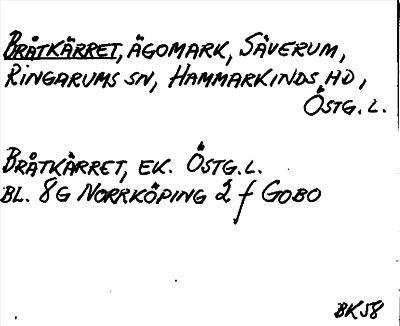 BRÅTKÄRRET, ÄGOMARK, SÄVERUM,
RINGARUMS SN, HAMMARKINDS HD,
ÖSTG. L.
BRÅTKÄRRET, EK. ÖSTG. L.
BL. 8G NORRKÖPING 2 f GOBO
BK58